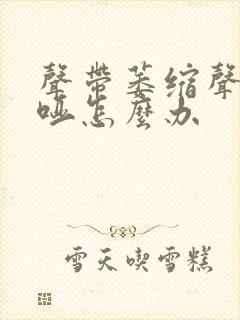 聲帶萎缩聲
啞怎麼办
雪天喫雪糕